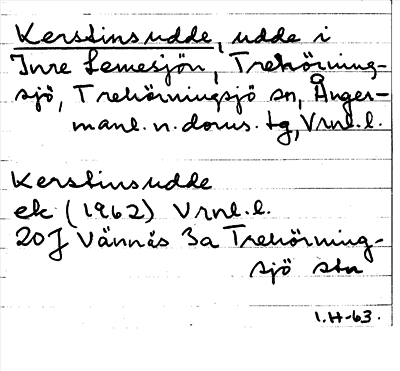 Kerstinsudde, udde i
Inre Lemesjön, Trehörning-
sjö, Trehörningsjö sn, Ånger-
manl. n. doms. tg, Vrnl. l.
Kerstinsudde
ek (1962) Vrnl. l.
20J Vännäs 3a Trehörning-
sjö stn
I.H-63.